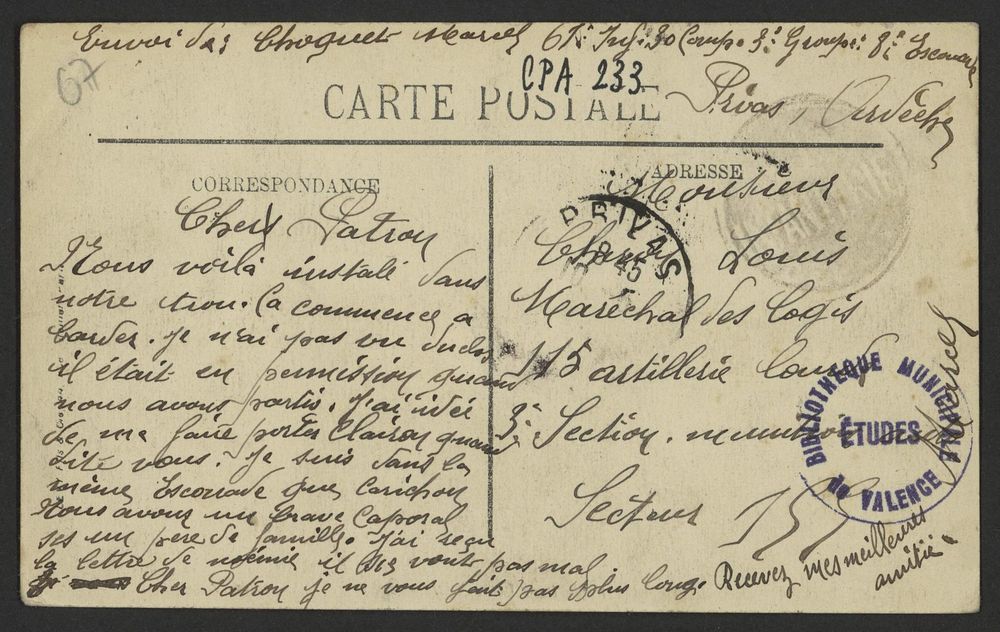 Envoi de: Choquet Marcel 61e Inf. 30 Comp. 3e Groupe: 8e Escouade
Privas, Ardèche
67
CPA 233
CARTE POSTALE
CORRESPONDANCE
ADRESSE
Cher Patron
Nous voilà installé dans
notre trou. Ca commence a
barder. je n'ai pas vu
il était en permission quand
nous avons partis. J'ai idée
de me faire porter Clairon quand
dite vous. Je suis dans la
même Escouade que Carichon
Nous avons un brave Caporal
ses un père de famille. J'ai reçu
la lettre de noémie il vont pas mal
Cher Patron je ne vous fait pas plus long.
Recevez mes meilleures
amitié
Marcel
Monsieur
Louis
Maréchal des logis
115 artillerie lourde
3e Section.
Secteur
PRIVAS
BIBLIOTHEQUE MUNICIPALE
ÉTUDES
de VALENCE